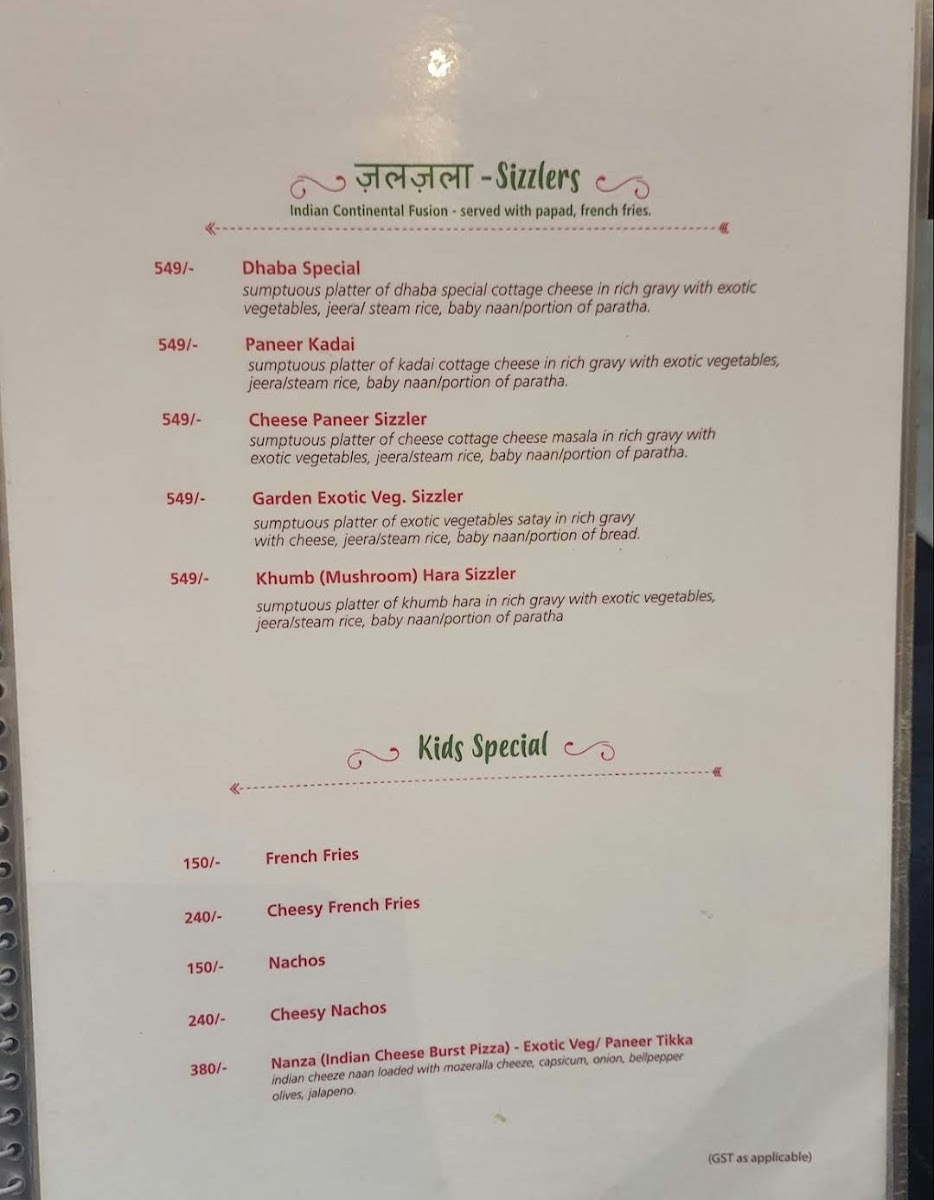 ज़लज़ला - Sizzlers
Indian Continental Fusion - served with papad, french fries.
549/- Dhaba Special
sumptuous platter of dhaba special cottage cheese in rich gravy with exotic
vegetables, jeera/ steam rice, baby naan/portion of paratha.
549/- Paneer Kadai
sumptuous platter of kadai cottage cheese in rich gravy with exotic vegetables,
jeera/steam rice, baby naan/portion of paratha.
549/- Cheese Paneer Sizzler
sumptuous platter of cheese cottage cheese masala in rich gravy with
exotic vegetables, jeera/steam rice, baby naan/portion of paratha.
549/- Garden Exotic Veg. Sizzler
sumptuous platter of exotic vegetables satay in rich gravy
with cheese, jeera/steam rice, baby naan/portion of bread.
549/- Khumb (Mushroom) Hara Sizzler
sumptuous platter of khumb hara in rich gravy with exotic vegetables,
jeera/steam rice, baby naan/portion of paratha
Kids Special
150/- French Fries
240/- Cheesy French Fries
150/- Nachos
240/- Cheesy Nachos
380/- Nanza (Indian Cheese Burst Pizza) - Exotic Veg/ Paneer Tikka
indian cheeze naan loaded with mozeralla cheeze, capsicum, onion, bellpepper
olives, jalapeno.
(GST as applicable)